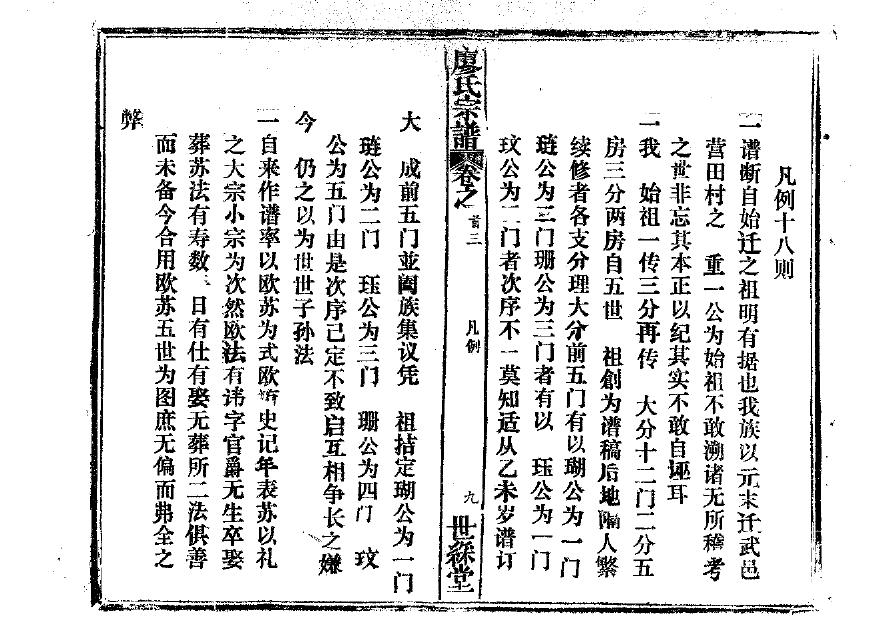 凡例十八则
一谱断自始迁之祖明有据也我族以元末迁武邑
营田村之 重一公为始祖不敢溯诸无所稽考
之世非忘其本正以纪其实不敢自诬耳
一我 始祖一传三分再传 大分十二门二分五
房三分两房自五世 祖創为谱稿后地隔人繁
续修者各支分理大分前五门有以瑚公为一门
琏公为三门珊公为三门者有以 珏公为一门
玟公为二门者次序不一莫知适从乙未岁谱订
廖氏宗譜 卷之 首三 凡例 九 世綵堂
大 成前五门並阖族集议凭 祖拮定瑚公为一门
琏公为二门 珏公为三门 珊公为四门 玟
公为五门由是次序已定不致启互相争长之嫌
今 仍之以为世世子孙法
一自来作谱率以欧苏为式欧 史记年表苏以礼
之大宗小宗为次然欧法有讳字官爵无生卒娶
葬苏法有寿数 日有仕有娶无葬所二法俱善
而未备今合用欧苏五世为图庶无偏而弗全之
弊